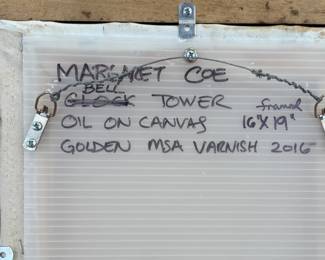 MARGARET COE
BELL
CLOCK TOWER
framed
OIL ON CANVAS 16"X19"
GOLDEN MSA VARNISH 2015